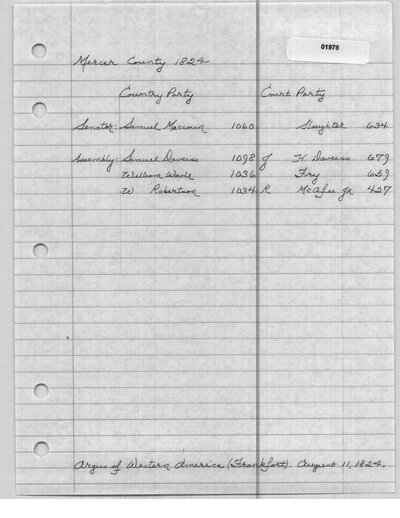 01978
Mercer County 1824
Country Party Court Party
Senator: Samuel Maccoun 1060 Slaughter 634
Assembly: Samuel Daveiss 1098 J H. Daveiss 679
William Wade 1036 Fry 659
W Robertson 1034 R McAfee Jr 427
Argus of Western America (Frankfort). August 11, 1824.